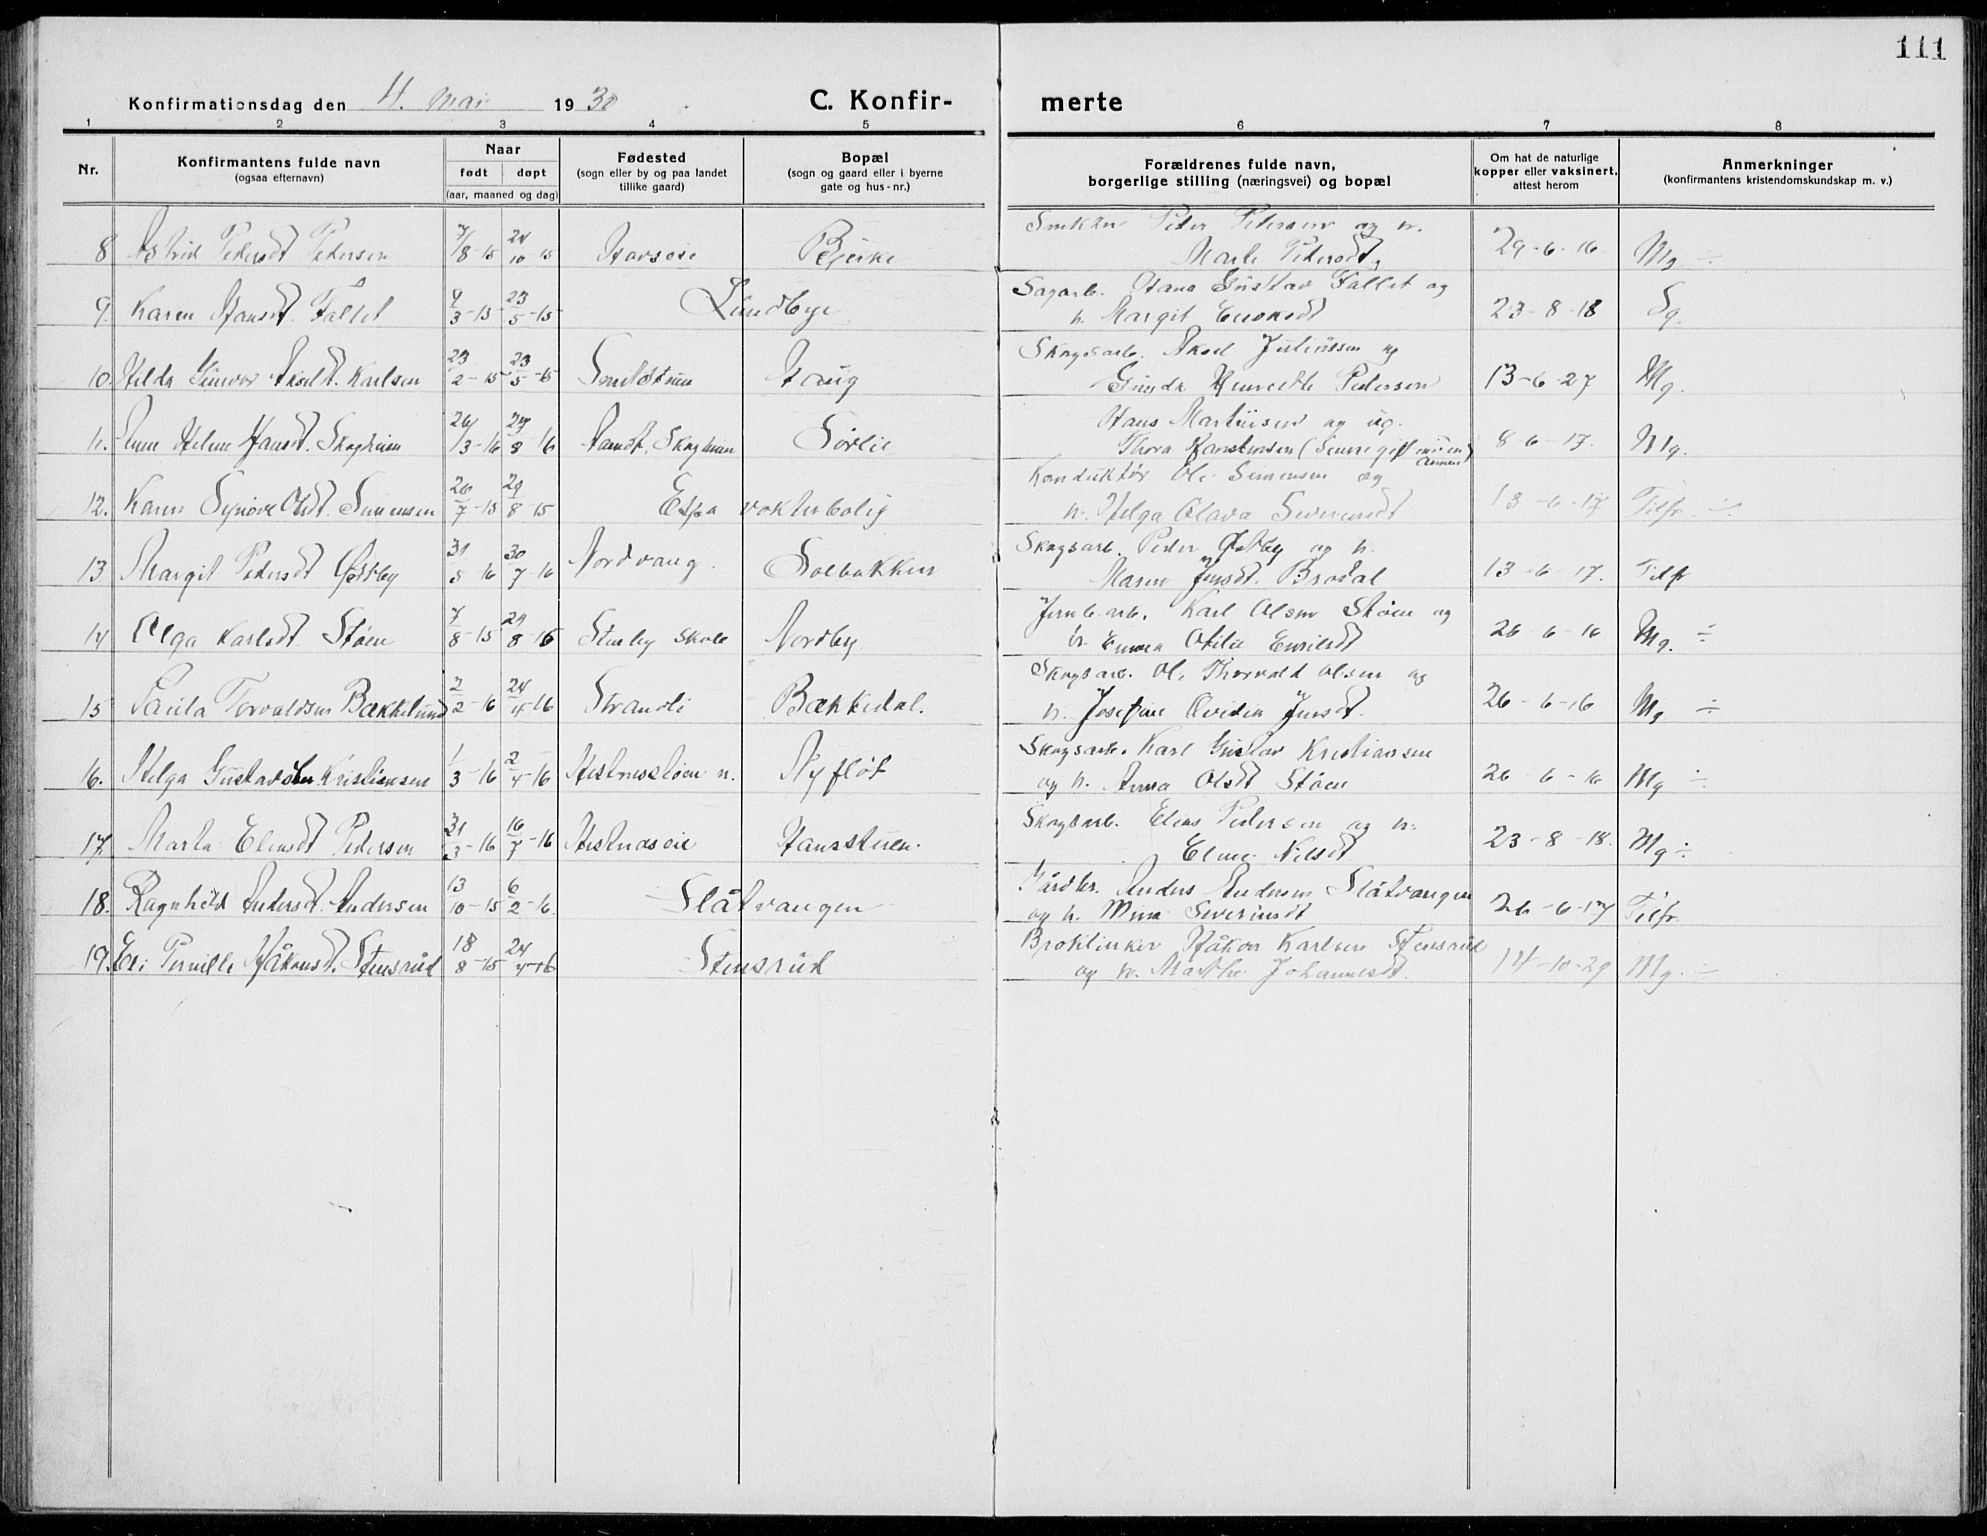 111
Konfirmationsdag den 4. mai 1930
C. Konfir-
merte
1 2 3 4 5 6 7 8
Nr.
Konfirmantens fulde navn
(ogsaa efternavn)
Naar
født døpt
(aar, maaned og dag)
Fødested
(sogn eller by og paa landet
tillike gaard)
Bopæl
(sogn og gaard eller i byerne
gate og hus-nr.)
Forældrenes fulde navn,
borgerlige stilling (næringsvei) og bopæl
Om hat de naturlige
kopper eller vaksinert,
attest herom
Anmerkninger
(konfirmantens kristendomskundskap m. v.)
8 Astrid Pedersdt Pedersen 7/8-15 24/10-15 Peder Pedersen og h.
Marte Pedersdt. 29-6-16 Mg ÷
9. Karen Hansdt. Fallet 9/3-15 23/5-15 Lundbye Sagarb. Hans Gustav Fallet og
h. Margit 23-8-18 Sg.
10. Hilda Gunvor Akselt. Karlsen 23/2-15 23/5-15 Smildstuen Haug Skogsarb. Aksel Juliussen og
Gunda Henriette Pedersen 13-6-27 Mg.
11. Anne Helene Hansdt. Skogheim 26/3-16 27/8-16 Skogheim Sørlie Hans Martinsen og ug.
Thora Karstensen (Senere gift med en
annen) 8-6-17. Mg.
12. Karen Synøve Olsdt. Simensen 26/7-15 29/8-15 Espa vokterbolig Konduktør Ole Simensen og
h. Helga Olava Severinsdt 13-6-17 Tilfr. ÷
13 Margit Pedersdt Østby 31/5-16 30/7-16 Nordvang. Solbakken Skogsarb. Peder Østby og h.
Maren Jensdt. Brodal 13-6-17. Tilfr
14 Olga Karlsdt Støen 7/8-15 29/8-15 Stenby skole Nordby Jernb.arb. Karl Olsen Støen og
h. Emma Otilie Emilsdt 26-6-16 Mg. ÷
15 Paula Torvaldsen Bækkelund 2/2-16 24/4-16 Strandli Bækkedal. Skogsarb. Ole Thorvald Olsen og
h. Josefine Jensdt. 26-6-16 Mg ÷
16. Helga Gustavsdtr Kristiansen 1/3-16 2/4-16 Hestnesstøen n. Nyfløt Skogsarb. Karl Gustav Kristiansen
og h. Anna Olsdt Støen 26-6-16 Mg ÷
17. Marta Eliasdt Pedersen 31/3-16 16/7-16 Hestneseie Hansstuen. Skogsarb. Elias Pedersen og h.
Eline Nilsdt 23-8-18. Mg ÷
18. Ragnhild Andersdt. Andersen 13/10-15 6/2-16 Slåtvangen Gårdbr. Anders Andersen Slåtvangen
og h. Mina Severinsdt 26-6-17 Tilfr.
19. Eli Pernille Håkonsdt. Stensrud 18/8-15 24/4-16 Stensrud Håkon Karlsen Stensrud
og h. Marthe Johannesdt. 14-10-29 Mg. ÷